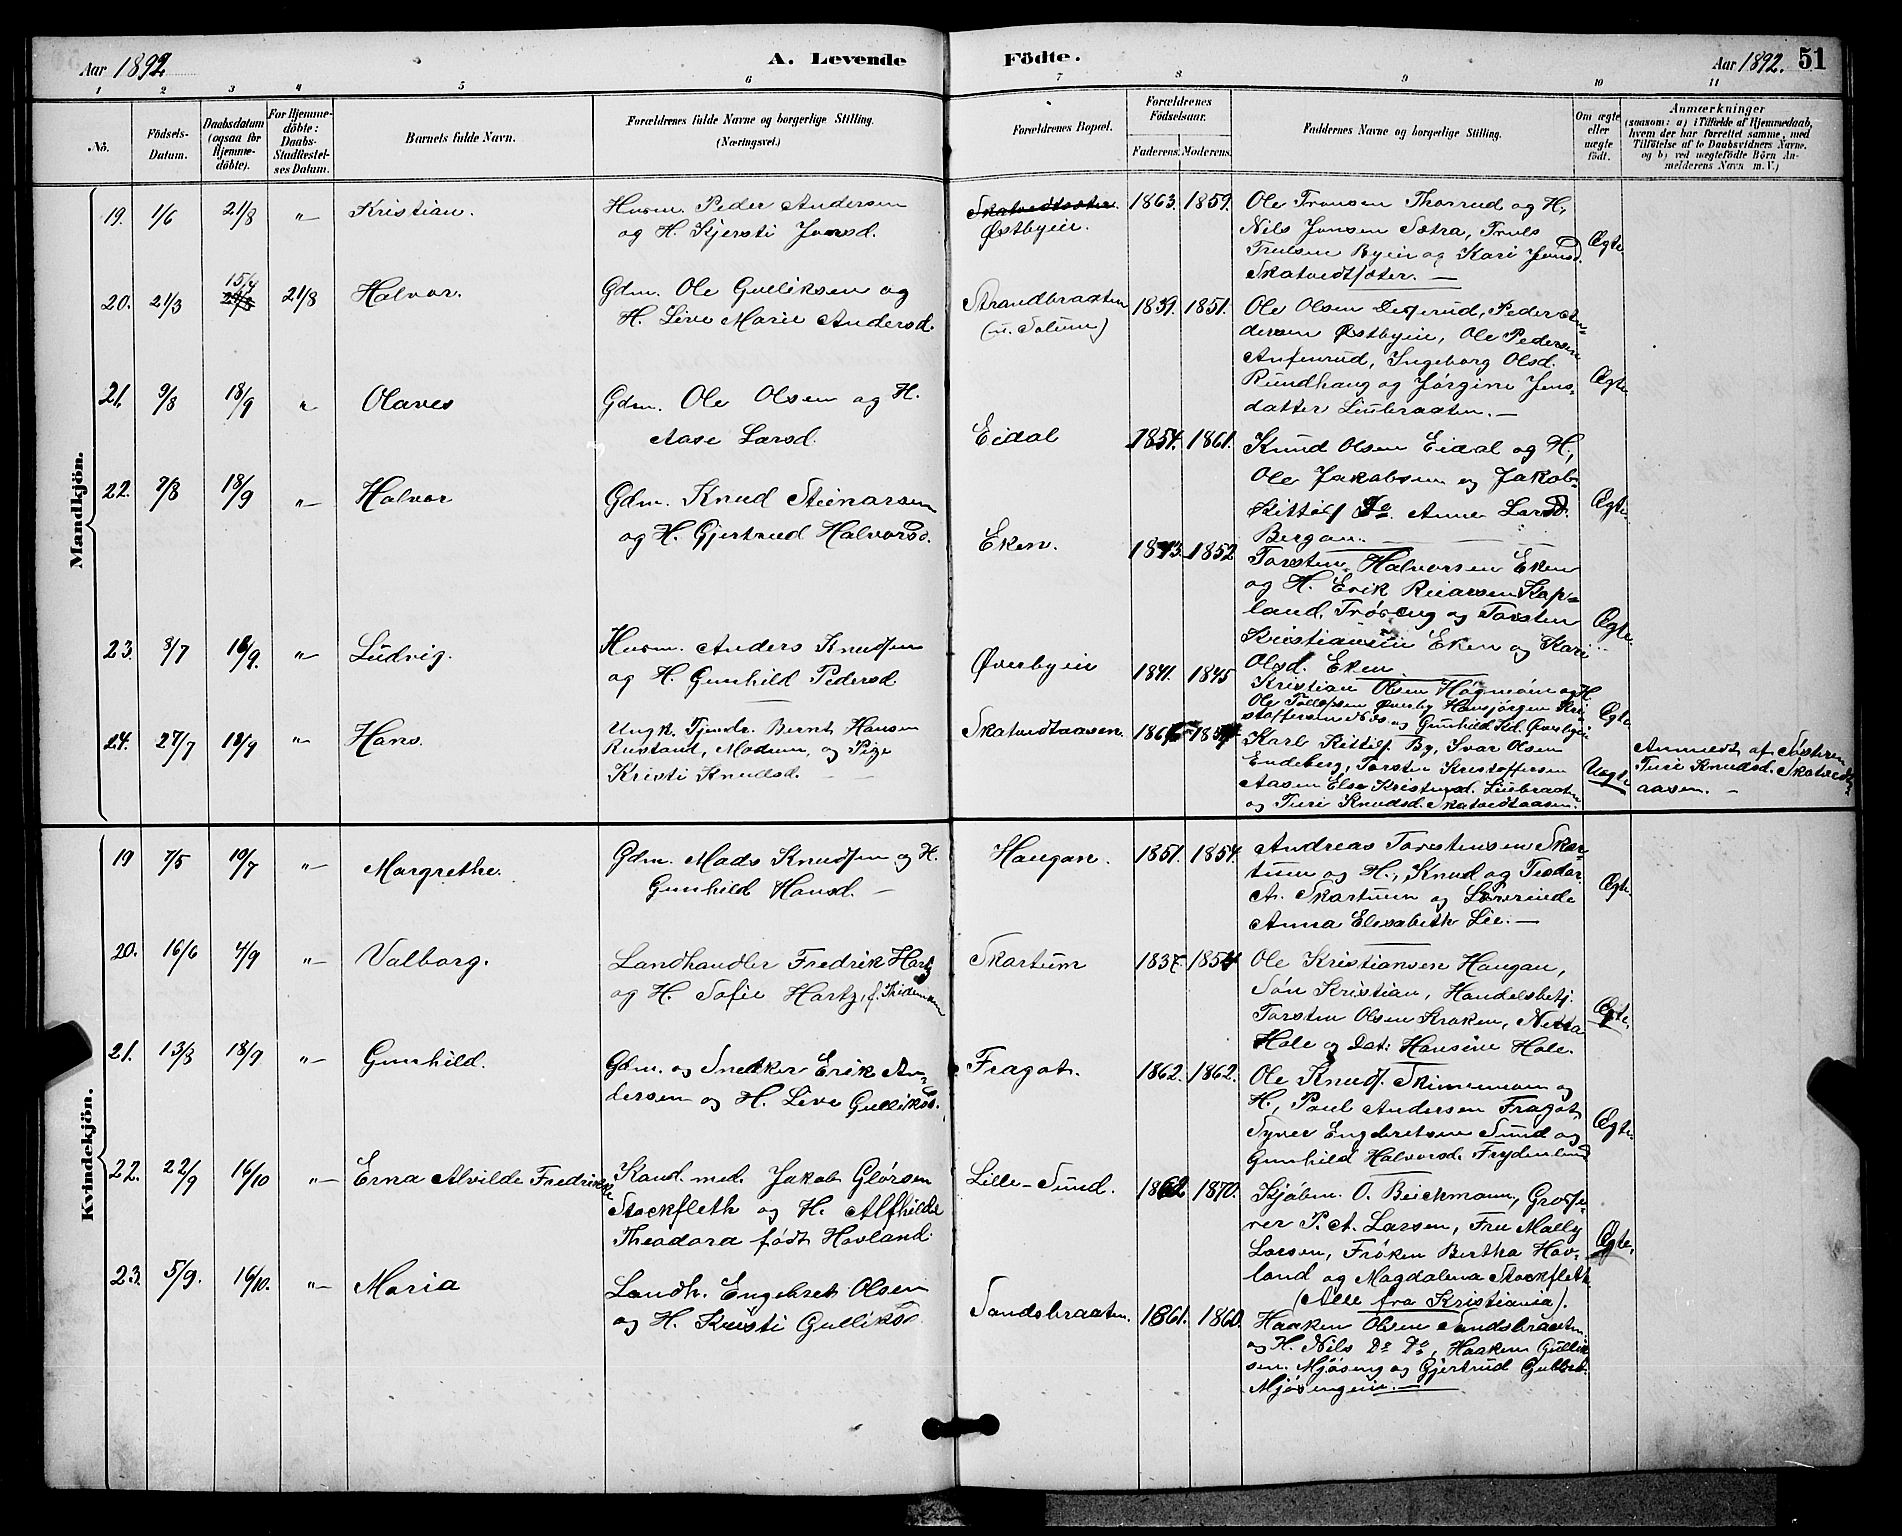 Aar 1892.
A. Levende Födte.
Aar 1892. 51
1 2 3 4 5 6 7 8 9 10 11
No.
Födsels-
Datum.
Daabsdatum
(ogsaa for
Hjemme-
döbte).
For Hjemme-
döbte:
Daabs-
Stadfæstel-
ses Datum.
Barnets fulde Navn.
Forældrenes fulde Navne og borgerlige Stilling.
(Næringsvei.)
Forældrenes Bopæl.
Forældrenes
Födselsaar.
Faderens. Moderens.
Faddernes Navne og borgerlige Stilling.
Om ægte
eller
uægte
födt.
Anmærkninger
(saasom: a) i Tilfælde af Hjemmedaab,
hvem der har forrettet samme, med
Tilföielse af to Daabsvidners Navne,
og b) ved uægtefödte Börn An-
melderens Navn m. V.)
Mandkjön.
19. 1/6 21/8 " Kristian.
Husm. Peder Andersen
og H. Kjersti Jonsd.
Skatvedtsæter.
Østbyeie.
1863. 1859.
Ole Fransen Thorrud og H.,
Nils Jonsen Sætra, Truls
Trulsen Byeie og Kari Jonsd.
Skatvedtsæter. —
Ægte
20. 21/3 15/4 21/8 Halvor.
Gdm. Ole Gulliksen og
H. Live Marie Andersd.
Strandbraaten
(u. Solum)
1839. 1851.
Ole Olsen Degerud, Peder An-
dersen Østbyeie, Ole Pedersen
Anfinrud, Ingeborg Olsd.
Rundhaug og Jørgine Jens-
datter Liubraaten. —
Ægte
21. 9/8 18/9 " Olaves
Gdm. Ole Olsen og H.
Aase Larsd.
Eidal
1854. 1861.
Knud Olsen Eidal og H.,
Ole Jakobsen og Jakob
Kittils. Do. Anne Larsd.
Bergan.
Ægte
22. 7/8 18/9 " Halvor
Gdm. Knud Steinarsen
og H. Gjertrud Halvorsd.
Eken.
1843. 1852
Torsten Halvorsen Eken
og H. Erik Reiarsen Kap-
land, Trøseng og Torsten
Kristiansen Eken og Kari
Olsd. Eken
Ægte
23. 8/7 18/9. " Ludvig.
Husm. Anders Knudsen
og H. Gunhild Pedersd.
Øverbyeie
1841. 1845
Kristian Olsen Hagmoen og H.
Ole Tollefsen Øverby Hansjørgen Kri-
stoffersen Do. og Gunhild Kd. Øverbyeie
Ægte
24. 27/7 18/9 " Hans.
Ungk. Tjendr. Bernt Hansen
Rustand, Modum, og Pige
Kristi Knudsd.
Skatvedtaasen.
Karl Kittils. By, Ivar Olsen
Endeberg, Torsten Kristoffersen
Aasen Else Kristensd. Liubraaten
og Turi Knudsd. Skatvedtaasen.
Uægte
Anmeldt af Søsteren
Turi Knudsd. Skatvedt-
aasen. —
Kvindekjön.
19 7/5 10/7 " Margrethe.
Gdm. Mads Knudsen og H.
Gunhild Hansd. —
Haugan.
1851. 1854.
Andreas Torstensen Skar-
tum og H., Knud og Teodor
A. Skartum og Lærerinde
Anna Elisabeth Lie. —
Ægte.
20. 16/6 4/9 " Valborg.
Landhandler Fredrik Hartz
og H. Sofie Hartz, f. Thidemsen
Skartum
1837. 1854
Ole Kristiansen Haugan,
Søn Kristian, Handelsbetj.
Torsten Olsen Kroken, Netta
Hole og Dat. Hansine Hole.
Ægte.
21. 13/8 18/9 " Gunhild.
Gdm. og Snekker Erik An-
dersen og H. Live Gulliksd.
Fragot.
1862. 1862.
Ole Knuds. Skinnemoen og
H., Paul Andersen Fragot,
Syver Engebretsen Sund og
Gunhild Halvorsd. Frydenlund
Ægte.
22. 22/9 16/10 " Erna Alvilde Fredrikke
Kand. med. Jakob Glørsen
Stockfleth og H. Alfhilde
Theodora født Hovland.
Lille-Sund.
1862 1870.
Kjøbm. O. Beickmann, Grosse-
rer P. A. Larsen, Fru Mally
Larsen, Frøken Bertha Hov-
land og Magdalena Stockfleth
(Alle fra Kristiania).
Ægte.
23. 5/9. 16/10. " Maria
Landh. Engebret Olsen
og H. Kristi Gulliksd.
Sandsbraaten.
1861. 1860.
Haaken Olsen Sandsbraaten
og H. Nils Do Do, Haaken Gullik-
sen Mjøseng og Gjertrud Gulbr.
Mjøsengeie. —